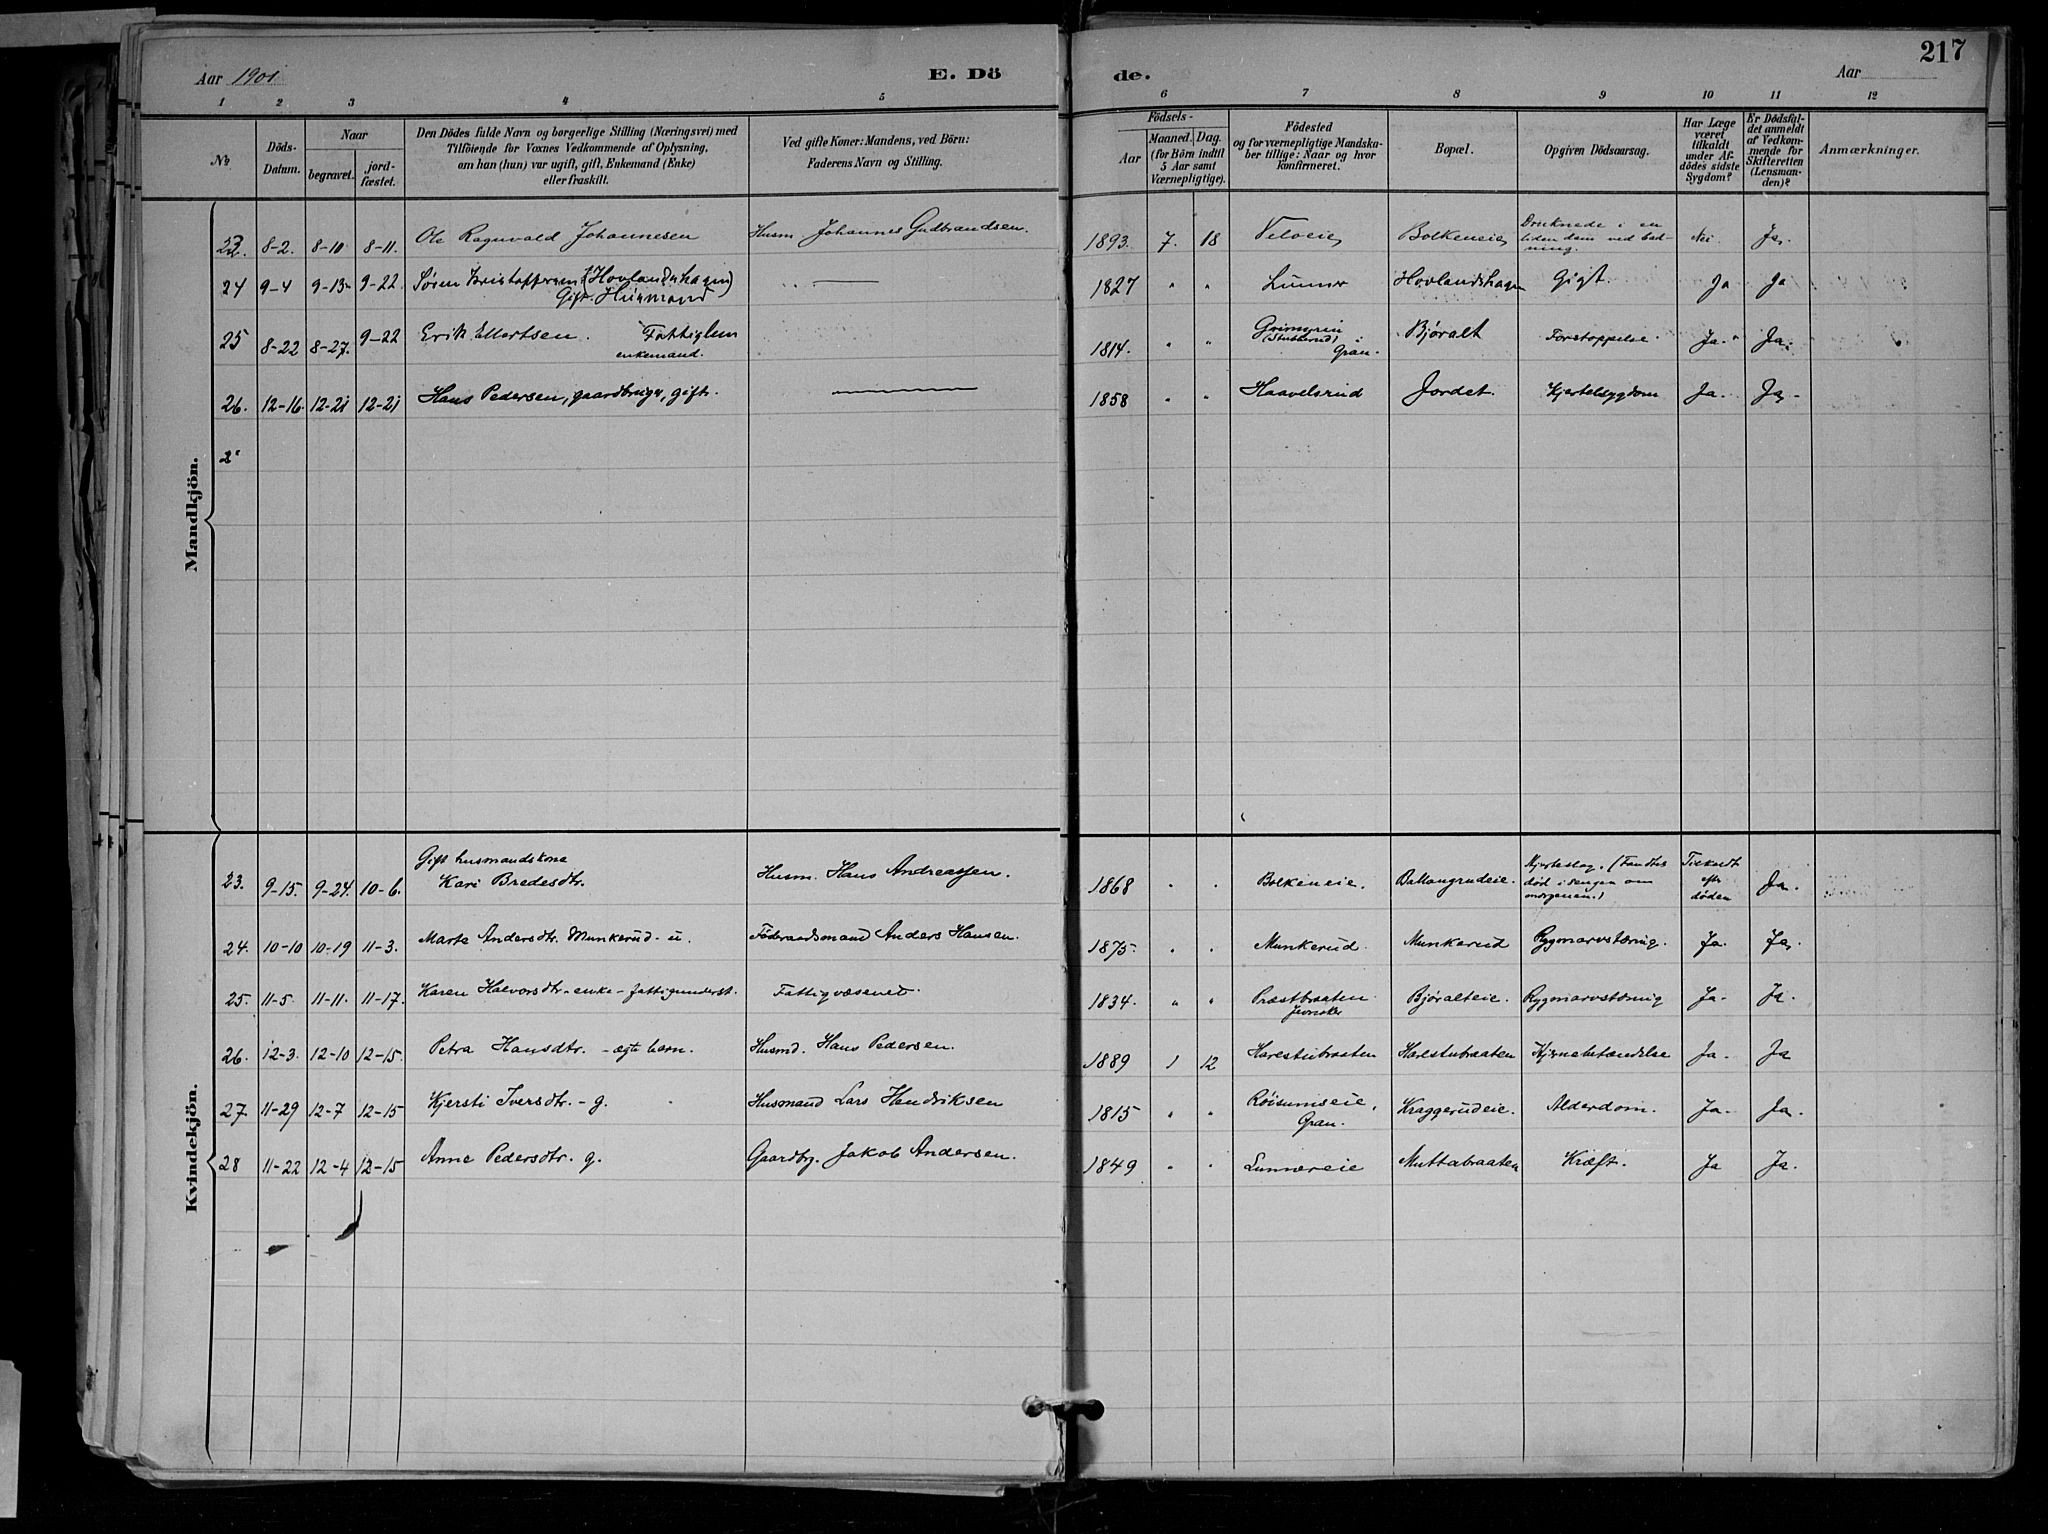 217
Aar 1901. E. Dö de. Aar
1 2 3 4 5 6 7 8 9 10 11 12
No
Döds-
Datum.
Naar
begravet.
jord-
fæstet.
Den Dödes fulde Navn og borgerlige Stilling (Næringsvei) med
Tilföiende for Voxnes Vedkommende af Oplysning,
om han (hun) var ugift, gift, Enkemand (Enke)
eller fraskilt.
Ved gifte Koner: Mandens, ved Börn:
Faderens Navn og Stilling.
Födsels-
Aar
Maaned. Dag.
(for Börn indtil
5 Aar samt
Værnepligtige).
Födested
og for værnepligtige Mandska-
ber tillige: Naar og hvor
konfirmeret.
Bopæl.
Opgiven Dödsaarsag.
Har Læge
været
tilkaldt
under Af-
dödes sidste
Sygdom?
Er Dödsfal-
det anmeldt
af Vedkom-
mende for
Skifteretten
(Lensman-
den)?
Anmærkninger.
Mandkjön.
23 8-2. 8-10 8-11. Ole Ragnvald Johannesen Husm. Johannes Gudbrandsen. 1893. 7. 18 Veloeie Bolkeneie Druknede i en
ved bad-
ning. Nei Ja.
24 9-4 9-13 9-22 Søren Kristoffersen (Hovlandshagen)
Gift. Husmand 1827 " " Lunner Hovlandshagen Gigt. Ja Ja
25 8-22 8-27. 9-22 Erik Ellertsen. Fattiglem
enkemand. 1814. " " Grimsrud
(Stubberud)
Gran. Bjøralt Forstoppelse. Ja. Ja.
26. 12-16. 12-21 12-21 Hans Pedersen, gaardbruger, gift. 1858 " " Haavelsrud Jordet. Kjertelsygdom Ja. Ja.
2
Kvindekjön.
23. 9-15. 9-24. 10-6. Gift husmandskone
Kari Bredesdtr. Husm. Hans Andreassen. 1868 " " Bolkeneie. Ballangrudeie. Hjerteslag. (Fandtes
død i sengen om
morgenen.) Tilkaldt
efter
døden Ja.
24. 10-10 10-19 11-3. Marte Andersdtr. Munkerud - u. Föderaadsmand Anders Hansen. 1875. " " Munkerud. Munkerud Rygmarvstæring. Ja. Ja.
25. 11-5. 11-11. 11-17. Karen Halvorsdtr. - enke - fattigunderst. Fattigvæsenet. 1834. " " Præstbraaten.
Jevnaker Bjøralteie. Rygmarvstæring Ja. Ja.
26. 12-3. 12-10 12-15. Petra Hansdtr. - ægte barn. Husmd. Hans Pedersen. 1889 1 12 Harestubraaten Harestubraaten Hjernebetændelse Ja. Ja
27. 11-29 12-7 12-15 Kjersti Iversdtr. - g. Husmand Lars Hendriksen 1815 " " Røisumseie,
Gran. Kraggerudeie. Alderdom. Ja. Ja.
28 11-22 12-4 12-15 Anne Pedersdtr. g. Gaardbr. Jakob Andersen. 1849 " " Lunnereie Muttabraaten Kræft. Ja Ja.